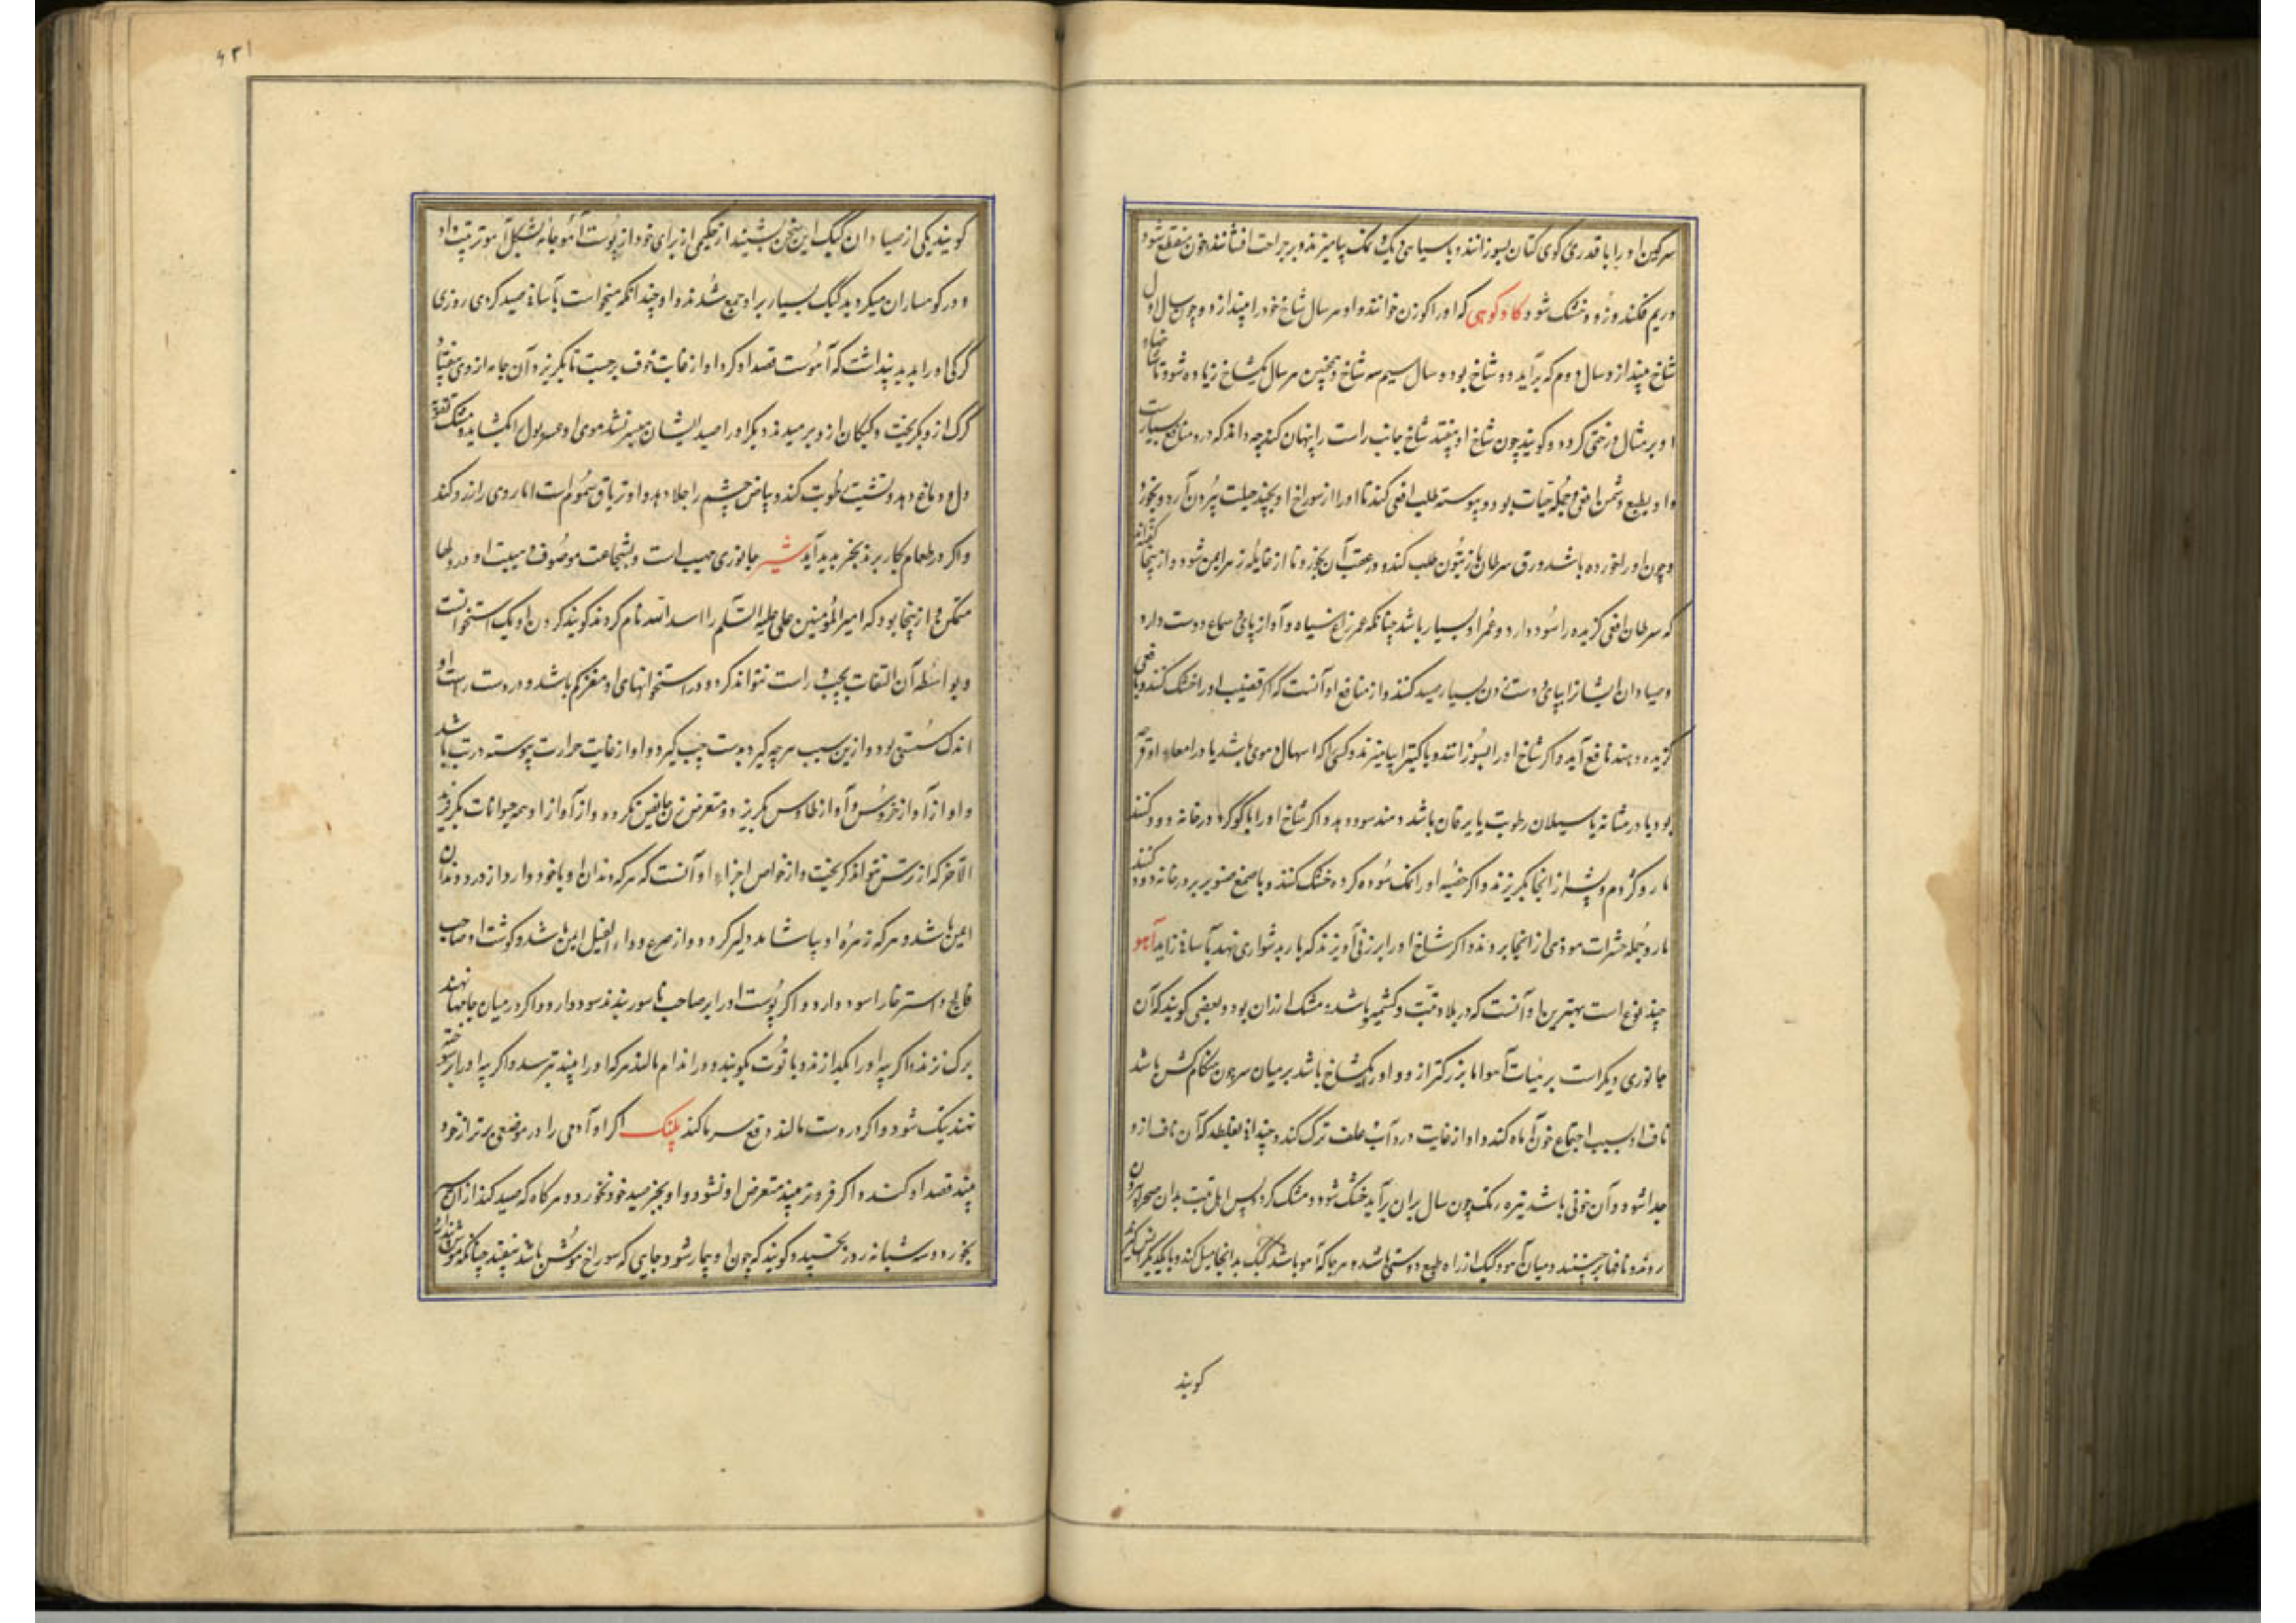 سرکین او را با قدری کوی کتان بسوزانند و با سیاهی دیک و نمک بیامیزند و بر جراحت افشانند خون منقطع شود
و ریم فکند و زود خشک شود کاو کوهی که او را کوزن خوانند و او هر سال شاخ خود را میندازد و چون سال اول
شاخ میندازد سال دوم که برآید دو شاخ بود و سال سیم سه شاخ و همچنین هر سال یک شاخ زیاده شود تا شاخهاء
او بر مثال درختی کردد و کویند چون شاخ او بیفتد شاخ جانب راست را پنهان کند چه داند که درو منافع بسیارست
و او بطبع دشمن افعی و جمله حیات بود و پیوسته طلب افعی کند تا او را از سوراخ او بچند حیلت بیرون آرد و بخورد
و چون او را بخورده باشد ورق سرطان زیتون طلب کند و در عقب آن بخورد تا از غایله زهر ایمن شود و از ینجا کفته‌اند
که سرطان افعی کزیده را سود دارد و عمر او بسیار باشد چنانکه عمر زاغ سیاه و آواز نای و سماع دوست دارد
و صیادان ایشان را بنای و دست زدن بسیار صید کنند و از منافع او آنست که اکر قضیب او را خشک کنند و بافعی
کزیده دهند نافع آید و اکر شاخ او را بسوزانند و با کتیرا بیامیزند و کسی را که اسهال دموی باشد یا در امعاء او قرحه
بود یا در مثانه یا سیلان رطوبت یا یرقان باشد دهند سود دهد و اکر شاخ او را با کوکرد در خانه دود کنند
مار و کژدم و پشه از انجا بکریزند و اکر خصیه او را نمک سوده کرده خشک کنند و با صمغ صنوبر در خانه دود کنند
مار و جمله حشرات موذی از انجا بروند و اکر شاخ او را بر زنی آویزند که بار بدشواری نهد بآسانی زاید آهو
چند نوع است بهترین او آنست که در بلاد تبت و کشمیر باشد و مشک ارزان بود و بعضی کویند که آن
جانوری دیکر است بر هیات آهو اما بزرکتر ازو و او را یک شاخ باشد بر میان سر چون هنکام کشن باشد
ناف او بسبب اجتماع خون آماه کند و او از غایت درد آب و علف ترک کند و چندانی بغلطد که آن ناف ازو
جدا شود و آن خونی باشد تیره رنک چون سال بران برآید خشک شود و مشک کردد پس اهل تبت بدان صحرا بیرون
روند و نافها برچینند و میان آهو و کبک از راه طبع دوستی باشد و هر جا که آهو باشد کبک بدانجا میل کند و با یکدیکر انس کیرند
کویند
۶۳۱
کویند یکی از صیادان کبک این سخن بشنید از حکیمی از برای خود از پوست آهو جامه بشکل آهو ترتیب داد
و در کوهساران میکردید کبک بسیار بر او جمع شدند و او چندانکه میخواست بآسانی صید کردی روزی
کرکی او را بدید پنداشت که آهوست قصد او کرد او از غایت خوف برجست تا بکریزد آن جامه از وی بیفتاد
کرک ازو بکریخت و کبکان ازو برمیدند و دیکر او را صید ایشان میسر نشد موی او عسر بول را بکشاید و مشک تقویت
دل و دماغ دهد و تنشیف رطوبت کند و بیاض چشم را جلا دهد و او تریاق سموم است اما روی را زرد کند
و اکر در طعام بکار برند بخر پدید آید شیر جانوری مهیب است و بشجاعت موصوف و هیبت او در دلها
متمکن و ازینجا بود که امیر المؤمنین علی علیه السلام را اسد الله نام کردند کویند کردن او یک استخوانست
و بواسطه آن التفات بچپ و راست نتواند کرد و در استخوانهای او مغز کم باشد و در دست راست او
اندک سستی بود و ازین سبب هر چه کیرد بدست چپ کیرد و او از غایت حرارت پیوسته در تب باشد
و او از آواز خروس و آواز طاوس بکریزد و متعرض زن حایض نکردد و از آواز او همه حیوانات بکریزند
الا خر که از ترس نتواند کریخت و از خواص اجزاء او آنست که هر که دندان او با خود دارد از درد دندان
ایمن باشد و هر که زهره او بیاشامد دلیر کردد و از صرع و داء الفیل ایمن باشد و کوشت او صاحب
فالج و استرخا را سود دارد و اکر پوست او را بر صاحب ناسور بندند سود دارد و اکر در میان جامها نهند
برک نزند و اکر پیه او را بکدازند و با توت بکوبند و در اندام مالند هر که او را بیند بترسد و اکر پیه او را بر سوخته
نهند نیک شود و اکر در دست مالند دفع سرما کند پلنک اکر او آدمی را در موضعی برتر از خود
بیند قصد او کند و اکر فروتر بیند متعرض او نشود و او بجز صید خود نخورد و هر کاه که صید کند از آن سیر
بخورد و سه شبانه روز بخسپد و کویند که چون او بیمار شود و جایی که سوراخ موش باشد بیفتد چنانکه موش